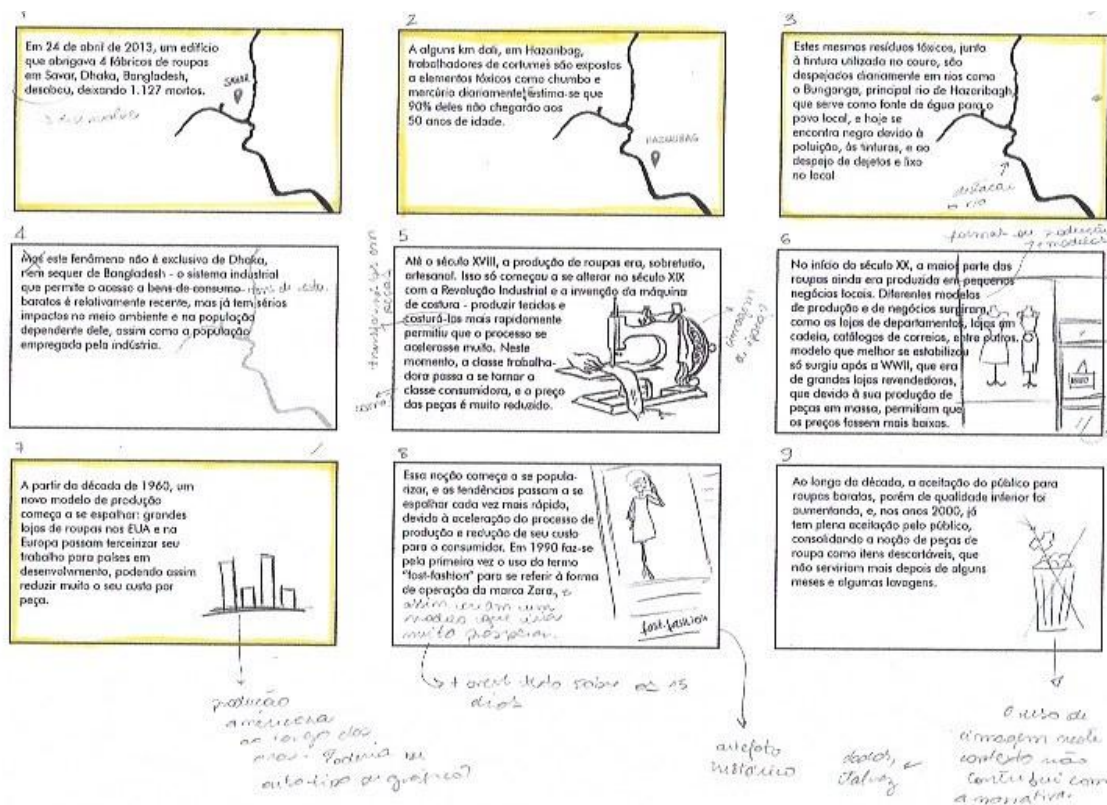 1
Em 24 de abril de 2013, um edifício
que abrigava 4 fábricas de roupas
em Savar, Dhaka, Bangladesh,
desabou, deixando 1.127 mortos.
SAVAR
2
A alguns km dali, em Hazaribag,
trabalhadores de cortumes são expostos
a elementos tóxicos como chumbo e
mercúrio diariamente; estima-se que
90% deles não chegarão aos
50 anos de idade.
HAZARIBAG
3
Estes mesmos resíduos tóxicos, junto
à tintura utilizada no couro, são
despejados diariamente em rios como
o Bunganga, principal rio de Hazaribagh,
que serve como fonte de água para o
povo local, e hoje se
encontra negro devido à
poluição, às tinturas, e ao
despejo de dejetos e lixo
no local
destacar
o rio
4
Mas este fenômeno não é exclusivo de Dhaka,
nem sequer de Bangladesh - o sistema industrial
que permite o acesso a bens de consumo
baratos é relativamente recente, mas já tem sérios
impactos no meio ambiente e na população
dependente dele, assim como a população
empregada pela indústria.
5
Até o século XVIII, a produção de roupas era, sobretudo,
artesanal. Isso só começou a se alterar no século XIX
com a Revolução Industrial e a invenção da máquina
de costura - produzir tecidos e
costurá-los mais rapidamente
permitiu que o processo se
acelerasse muito. Neste
momento, a classe trabalha-
dora passa a se tornar a
classe consumidora, e o preço
das peças é muito reduzido.
6
No início do século XX, a maior parte das
roupas ainda era produzida em pequenos
negócios locais. Diferentes modelos
de produção e de negócios surgiram,
como as lojas de departamentos, lojas em
cadeia, catálogos de correios, entre outros.
modelo que melhor se estabilizou
só surgiu após a WWII, que era
de grandes lojas revendedoras,
que devido à sua produção de
peças em massa, permitiam que
os preços fossem mais baixos.
7
A partir da década de 1960, um
novo modelo de produção
começa a se espalhar: grandes
lojas de roupas nos EUA e na
Europa passam terceirizar seu
trabalho para países em
desenvolvimento, podendo assim
reduzir muito o seu custo por
peça.
8
Essa noção começa a se popula-
rizar, e as tendências passam a se
espalhar cada vez mais rápido,
devido à aceleração do processo de
produção e redução de seu custo
para o consumidor. Em 1990 faz-se
pela primeira vez o uso do termo
"fast-fashion" para se referir à forma
de operação da marca Zara, e
assim criam um
modelo que
muito
fast-fashion
9
Ao longo da década, a aceitação do público para
roupas baratas, porém de qualidade inferior foi
aumentando, e, nos anos 2000, já
tem plena aceitação pelo público,
consolidando a noção de peças de
roupa como itens descartáveis, que
não serviriam mais depois de alguns
meses e algumas lavagens.
produção
americana
ao longo dos
anos. Poderia ser
outro tipo de gráfico?
sobre os 15
dias
artefato
histórico
dados,
talvez
O uso de
imagem neste
contexto não
contribui com
a narrativa.